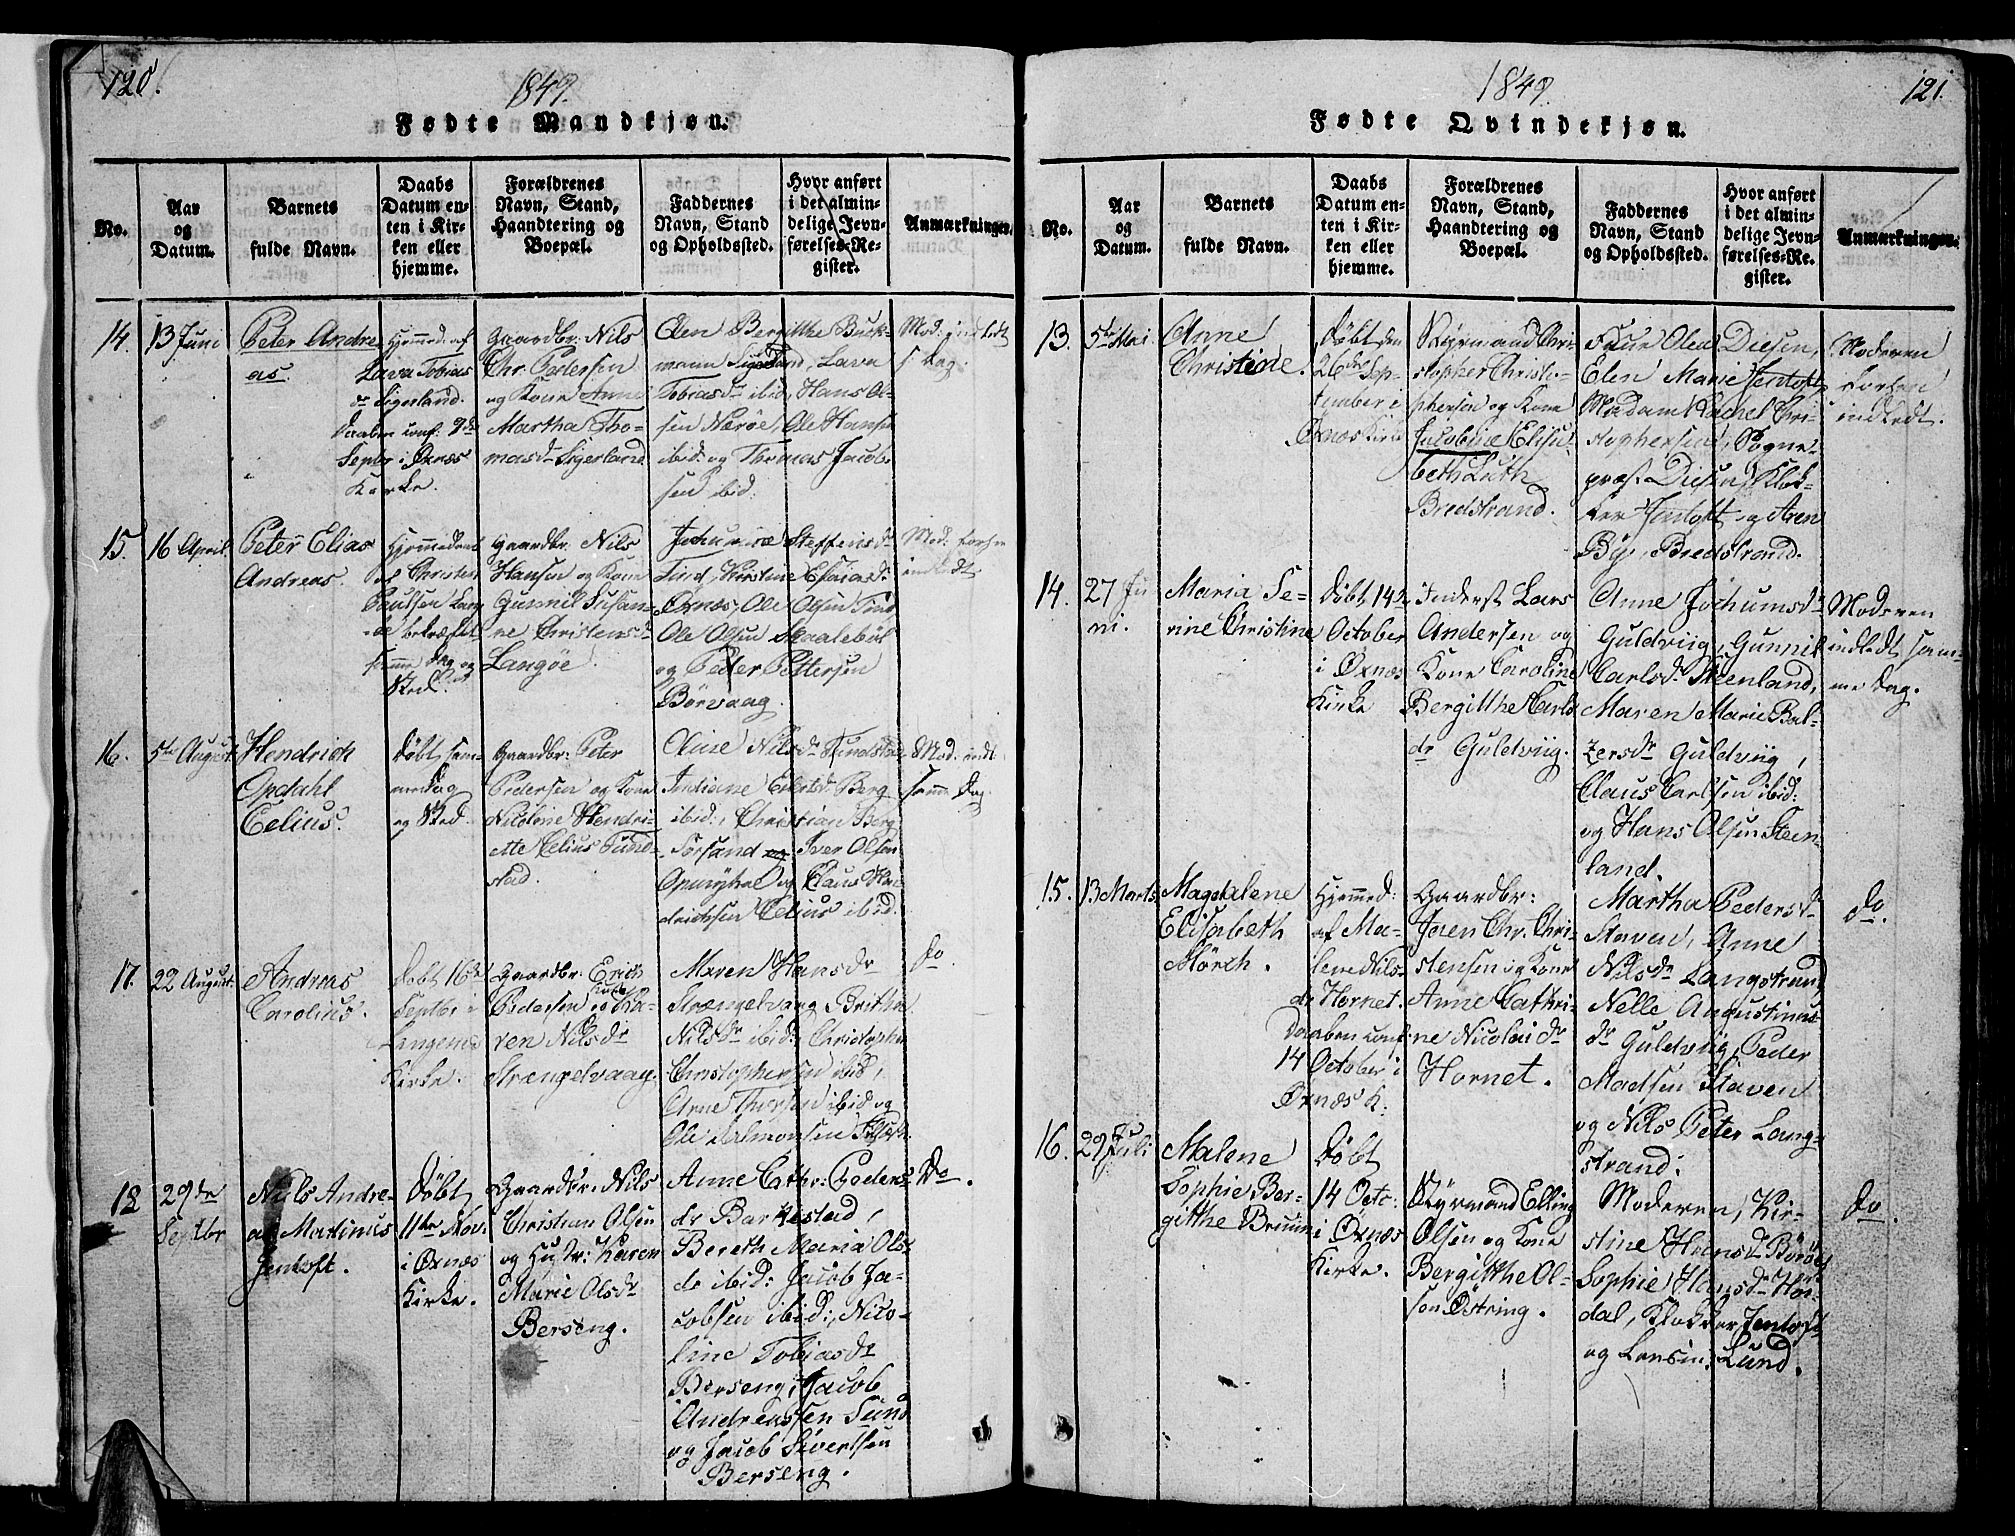 120.
1849.
Fødte Mandkjøn.
No.
Aar
og
Datum.
Barnets
fulde Navn.
Daabs
Datum en-
ten i Kir-
ken eller
hjemme.
Forældrenes
Navn, Stand,
Haandtering og
Boepæl.
Faddernes
Navn, Stand
og Opholdssted.
Hvor anført
i det almin-
delige Jevn-
førelses-Re-
gister.
Anmærkninger.
14.
13 Juni
Peter Andre
as.
Hjemmed: af
Lava Tobias
dr Sigerland.
Daaben conf: 9de
Septbr i Øxnes
Kirke.
Gaardbr: Nils
Chr. Pedersen
og Kone Anne
Martha Tho-
masdr Sigerland
Elen Bergitthe
mann Sigerland, Lava
Tobiasdr ibid, Hans Ol-
sen Nærøe, Ole Hansen
ibid: og Thomas Jacob-
sen ibid:
Mod: indledt
s. Dag.
15.
16 April
Peter Elias
Andreas.
Hjemmedøbt
af Christen
Paulsen Lang
øe bekræftet
samme Dag og
Sted
Gaardbr: Nils
Hansen og Kone
Gunnil Susan-
ne Christensdr
Langøe.
Steffensdr
Tind, Kirstine Esaiasdr
Øxnæs, Ole Olsen Tind
Ole Olsen Skaalebøl
og Peder Pettersen
Børvaag.
Mod: forhen
indledt
16.
5te August
Hendrich
Opdahl
Celius.
Døbt sam-
medag
og Sted
Gaardbr: Peter
Pedersen og Kone
Nicoline Hendri-
ette Celius Tund-
stad.
Oline Nilsdr Tundstad
Indiane Eilertsdr Berg
ibid:, Christian Berg
Torsand og Iver Olsen
og Claus Hen
drichsen Celius ibid.
Mod: indl.
samme Dag.
17.
22 August
Andreas
Carolius.
Døbt 16de
Septbr i
Langenes
Kirke.
Gaardbr: Erich
Pedersen og Ka-
ren Nilsdr
Strængelvaag.
Maren Hansdr
Strængelvaag, Brithe
Nilsdr ibid:, Christopher
Christophersen ibid,
Arne Thorsen ibid og
Ole Salmonsen
Do
18
29de
Septbr
Niels Andre-
as Martinus
Jentoft.
Døbt
11te Nov:
i Øxnæs
Kirke.
Gaardbr: Nils
Christian Olsen
og Hustr: Karen
Marie Olsdr
Berseng.
Anne Cathr: Peders-
dr Barkestad,
Bereth Maria Ols-
dr ibid: Jacob Ja-
cobsen ibid:, Nico-
line Tobiasdr
Berseng, Jacob
Andreassen Sund
og Jacob Sivertsen
Berseng.
Do.
1849.
121.
Fødte Qvindekjøn.
No.
Aar
og
Datum.
Barnets
fulde Navn.
Daabs
Datum en-
ten i Kir-
ken eller
hjemme.
Forældrenes
Navn, Stand,
Haandtering og
Boepæl.
Faddernes
Navn, Stand
og Opholdssted.
Hvor anført
i det almin-
delige Jevn-
førelses-Re-
gister.
Anmærkninger.
13.
5te Mai
Anne
Christine.
Døbt den
26de Sep-
tember i
Øxnæs Kirke
Styrmand Chri-
stopher Christo-
phersen og Kone
Jacobine Elisa-
beth Luth
Bredstrand.
Frue Olea Diesen,
Elen Marie Jentoft,
Madam Rachel Chri-
stophersen, Sogne-
præst Diesen, Klok-
ker Jentoft og Aren
By, Bredstrand.
Moderen
forhen
indledt.
14.
27 Ju
ni.
Maria Se-
rine Christine
Døbt 14de
October
i Øxnæs
Kirke
Inderst Lars
Andersen og
Kone Caroline
Bergitthe Carls
dr Guldviig.
Anne Jochumsdr
Guldviig, Gunnil
Carlsdr Steenland,
Maren Marie Bal-
zersdr Guldviig,
Claus Carlsen ibid:
og Hans Olsen Steen-
land.
Moderen
indledt sam-
me Dag.
15.
13 Marts
Magdalene
Elisabeth
Mörch.
Hjemmed:
af Ma-
lene Nils-
dr Hornet.
Daaben conf:
14 October i
Øxnæs K:
Gaardbr:
Joen Chr. Chri-
stensen og Kone
Anne Cathri-
ne Nicolaidr
Hornet.
Martha Pedersdr
Staven, Anne
Nilsdr Langstrand,
Nelle Augustinus-
dr Guldviig, Peder
Madsen Staven
og Nils Peter Lang-
strand.
Do.
16.
29 Juli
Malene
Sophie Ber-
gitthe Bruun
Døbt
14 Octo:
i Øxnæs
Kirke.
Styrmand Elling
Olsen og Kone
Bergitthe Ol-
sen Östring.
Moderen, Kir-
stine Hansdr Börøe,
Sophie Hansdr
dal, Klokker Jentoft
og Lund.
Do.